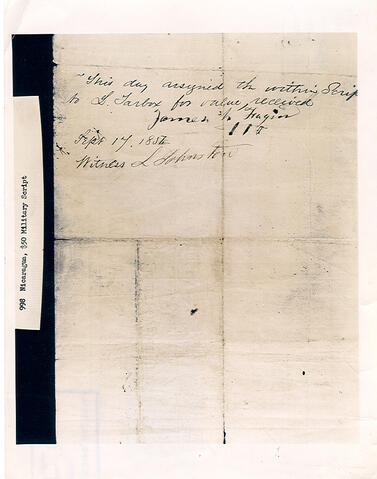 This day assigned the within Scrip
to L. Tarbox for value received
James
Sept 17. 1856
Witness L Johnston
998 Nicaragua, $50 Military Script